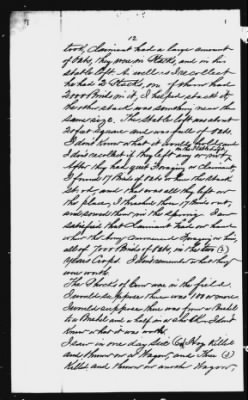 12
took, Claimant had a large amount
of Oats, they were in Stacks, and in his
stable loft. As well as I recollect
he had 2 Stacks, one of them had
2000 Binds in it, I helped stack it
the other stack was something near the
same size. The stable loft was about
20 feet square and was full of Oats.
I don't know what it would
I don't recollect if they left any or not,
After they had quit Foraging on Claimant
I found 17 Binds of Oats
and this was all they left on
the place, I thrashed these 17 Binds out,
and sowed them in the Spring. I am
satisfied that Claimant had on hand
when the Army Commenced Foraging on him,
all of 7000 Binds of Oats, in the two (2)
years Crops. I don't remember what they
was worth.
The Shocks of Corn was in the field.
I would suppose there was 100 or more
I would suppose there was from a Bushel
to a Bushel and a half in a Shock. I don't
know what it was worth.
I saw in one day Six (6) Hogs Killed
and thrown in a Wagon, and Three (3)
Killed and thrown in another Wagon,